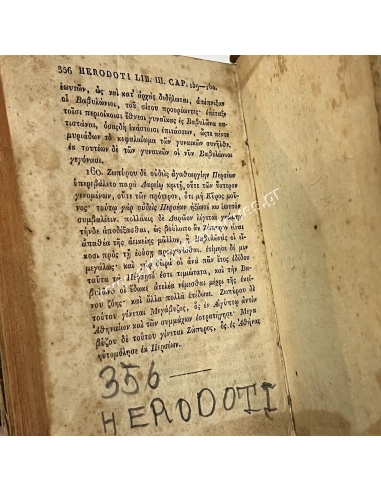 356 HERODOTI LIB. III. CAP. 159—160.
ἑωυτῶν, ὡς καὶ κατ' ἀρχὰς δεδήλωται, ἀπέπνιξαν
οἱ Βαβυλώνιοι, τοῦ σίτου προορέοντες· ἐπέταξε
τοῖσι περιοίκοισι ἔθνεσι γυναῖκας ἐς Βαβυλῶνα
τιστάναι, ὅσας δὴ ἑκάστοισι ἐπιτάσσων, ὥστε πέντε
μυριάδων τὸ κεφαλαίωμα τῶν γυναικῶν συνῆλθε.
ἐκ τουτέων δὲ τῶν γυναικῶν οἱ νῦν Βαβυλώνιοι
γεγόνασι.
160. Ζωπύρου δὲ οὐδεὶς ἀγαθοεργίην Περσέων
ὑπερεβάλετο παρὰ Δαρείῳ κριτῇ, οὔτε τῶν ὕστερον
γενομένων, οὔτε τῶν πρότερον, ὅτι μὴ Κῦρος μοῦ-
νος· τούτῳ γὰρ οὐδεὶς Περσέων ἠξίωσέ κω ἑωυτὸν
συμβαλέειν. πολλάκις δὲ Δαρεῖον λέγεται γνώμην
τήνδε ἀποδέξασθαι, ὡς βούλοιτο ἂν Ζώπυρον εἶναι
ἀπαθέα τῆς ἀεικείης μᾶλλον, ἢ Βαβυλῶνάς οἱ εἴ-
κοσι πρὸς τῇ ἐούσῃ προσγενέσθαι. ἐτίμησε δέ μιν
μεγάλως· καὶ γὰρ δῶρά οἱ ἀνὰ πᾶν ἔτος ἐδίδου
ταῦτα τὰ Πέρσῃσί ἐστι τιμιώτατα, καὶ τὴν Βα-
βυλῶνά οἱ ἔδωκε ἀτελέα νέμεσθαι μέχρι τῆς ἐκεί-
νου ζόης· καὶ ἄλλα πολλὰ ἐπέδωκε. Ζωπύρου δὲ
τούτου γίνεται Μεγάβυζος, ὃς ἐν Αἰγύπτῳ ἀντία
Ἀθηναίων καὶ τῶν συμμάχων ἐστρατήγησε· Μεγα-
βύζου δὲ τούτου γίνεται Ζώπυρος, ὃς ἐς Ἀθήνας
ηὐτομόλησε ἐκ Περσέων.
356
HERODOTI